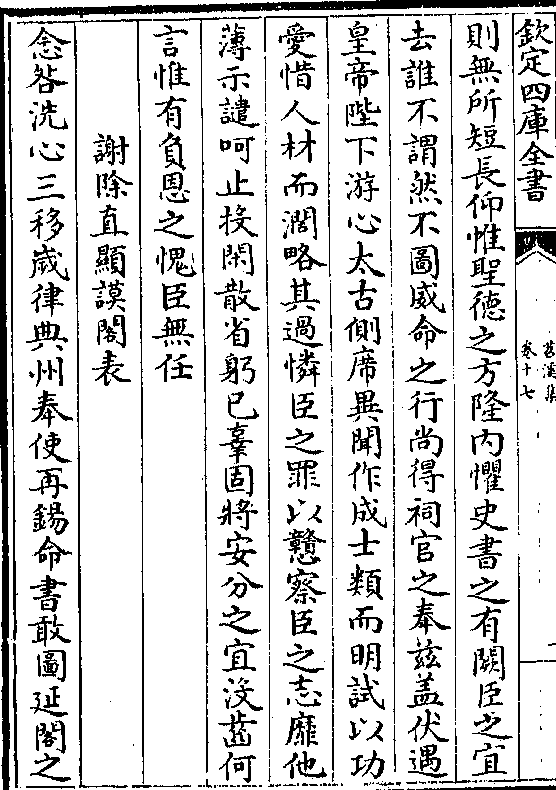 欽定四庫全書
苕溪集
卷十七
則無所短長仰惟聖德之方隆内懼史書之有闕臣之宜
去誰不謂然不圖威命之行尚得祠官之奉兹盖伏遇
皇帝陛下游心太古側席異聞作成士類而明試以功
愛惜人材而濶略其過憐臣之罪以戇察臣之志靡他
薄示譴呵止投閑散省躬已幸固將安分之宜没齒何
言惟有負恩之愧臣無任
謝除直顯謨閣表
念咎洗心三移嵗律典州奉使再錫命書敢圖延閣之